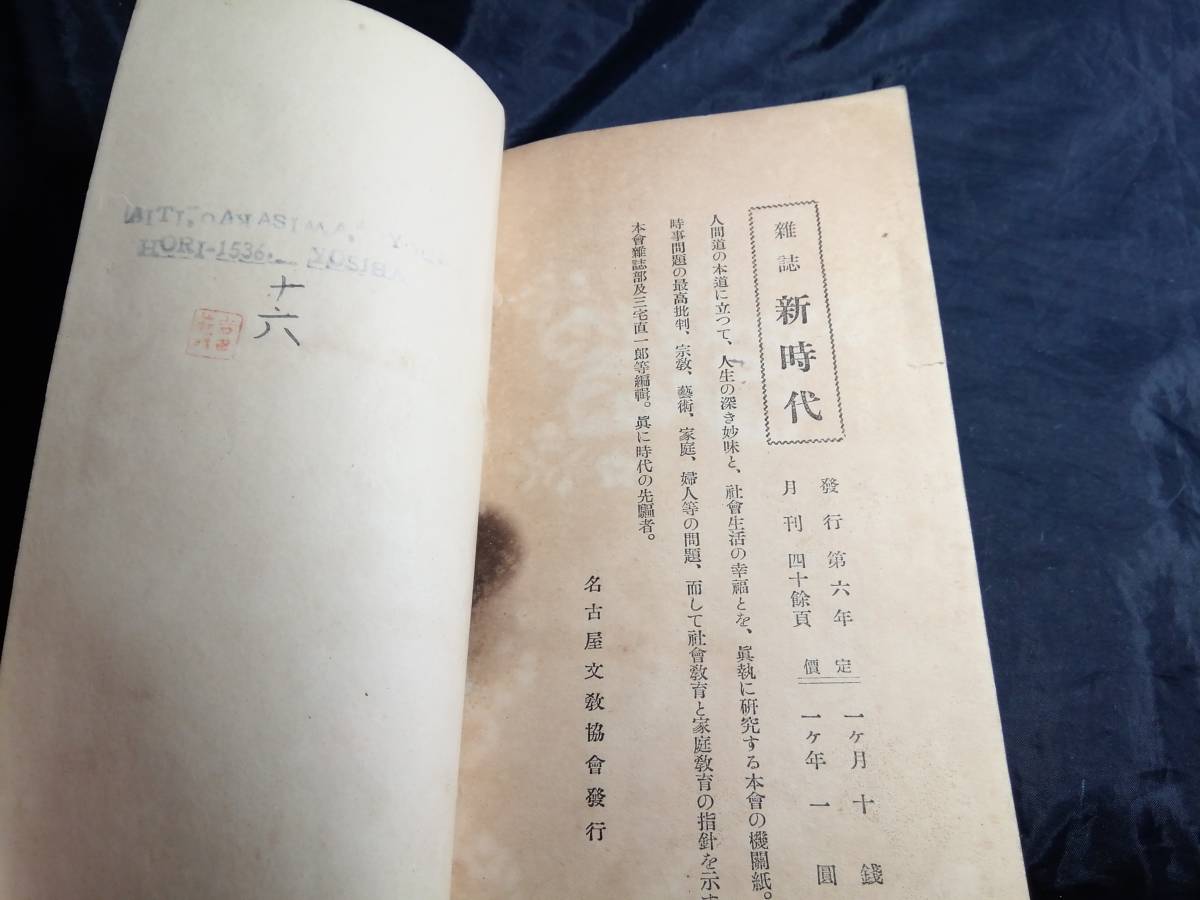 雜誌 新時代
發行第六年
月刊 四十餘頁
定價
一ケ月 十錢
一ケ年 一圓
人間道の本道に立つて、人生の深き妙味と、社會生活の幸福とを、眞執に研究する本會の機關紙。
時事問題の最高批判、宗敎、藝術、家庭、婦人等の問題、而して社會敎育と家庭敎育の指針を示す
本會雜誌部及三宅直一郞等編輯。眞に時代の先驅者。
名古屋文敎協會發行
HORI-1536. YOSIDA
十六